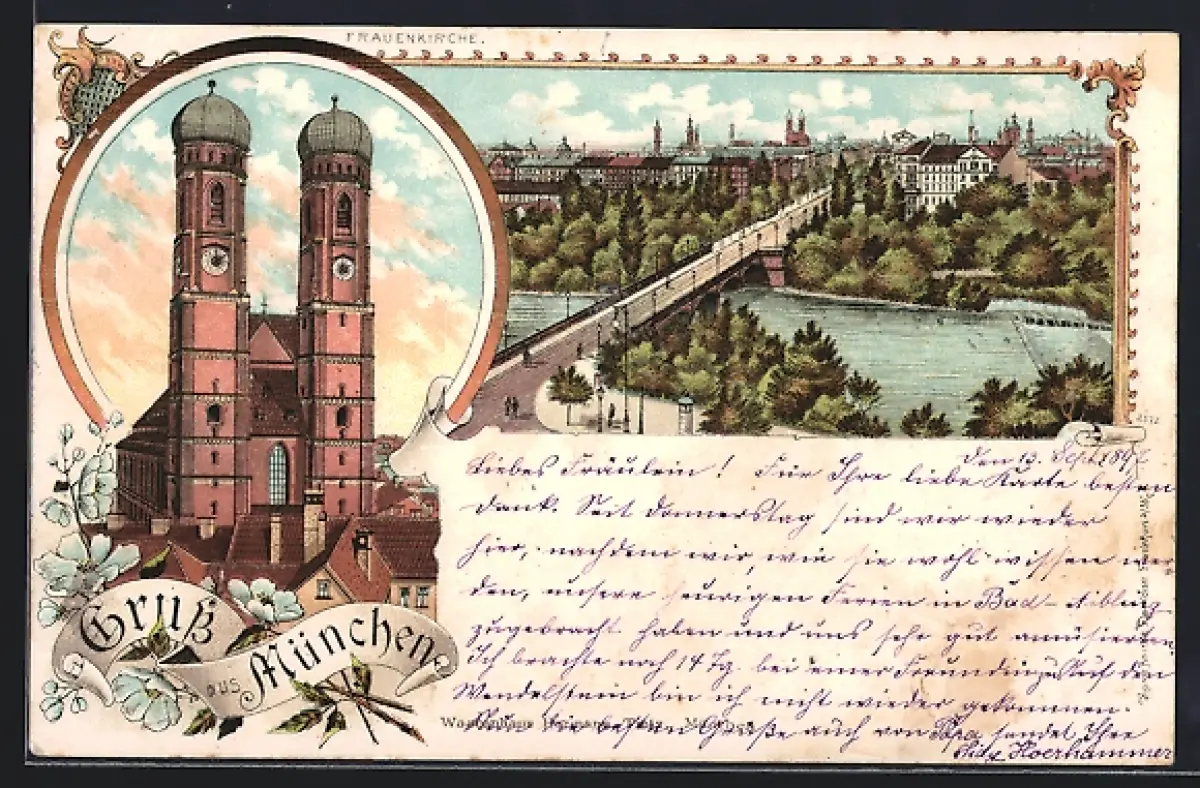 FRAUENKIRCHE.
Gruß
aus
München
den 13. Sept. 1897
Liebes Fräulein! Für Ihre liebe Karte besten
Dank. Seit Donnerstag sind wir wieder
hier, nachdem wir, wie sie wohl wissen wer
den, unsere heurigen Ferien in Bad-Aibling
zugebracht haben und uns sehr gut amüsierten.
Ich brachte noch 14 Tg. bei einer Freundin zu. Auf den
Wendelstein bin ich nicht wieder gekommen.
die besten Grüße auch von Papa sendet Ihre
Hoerhammer